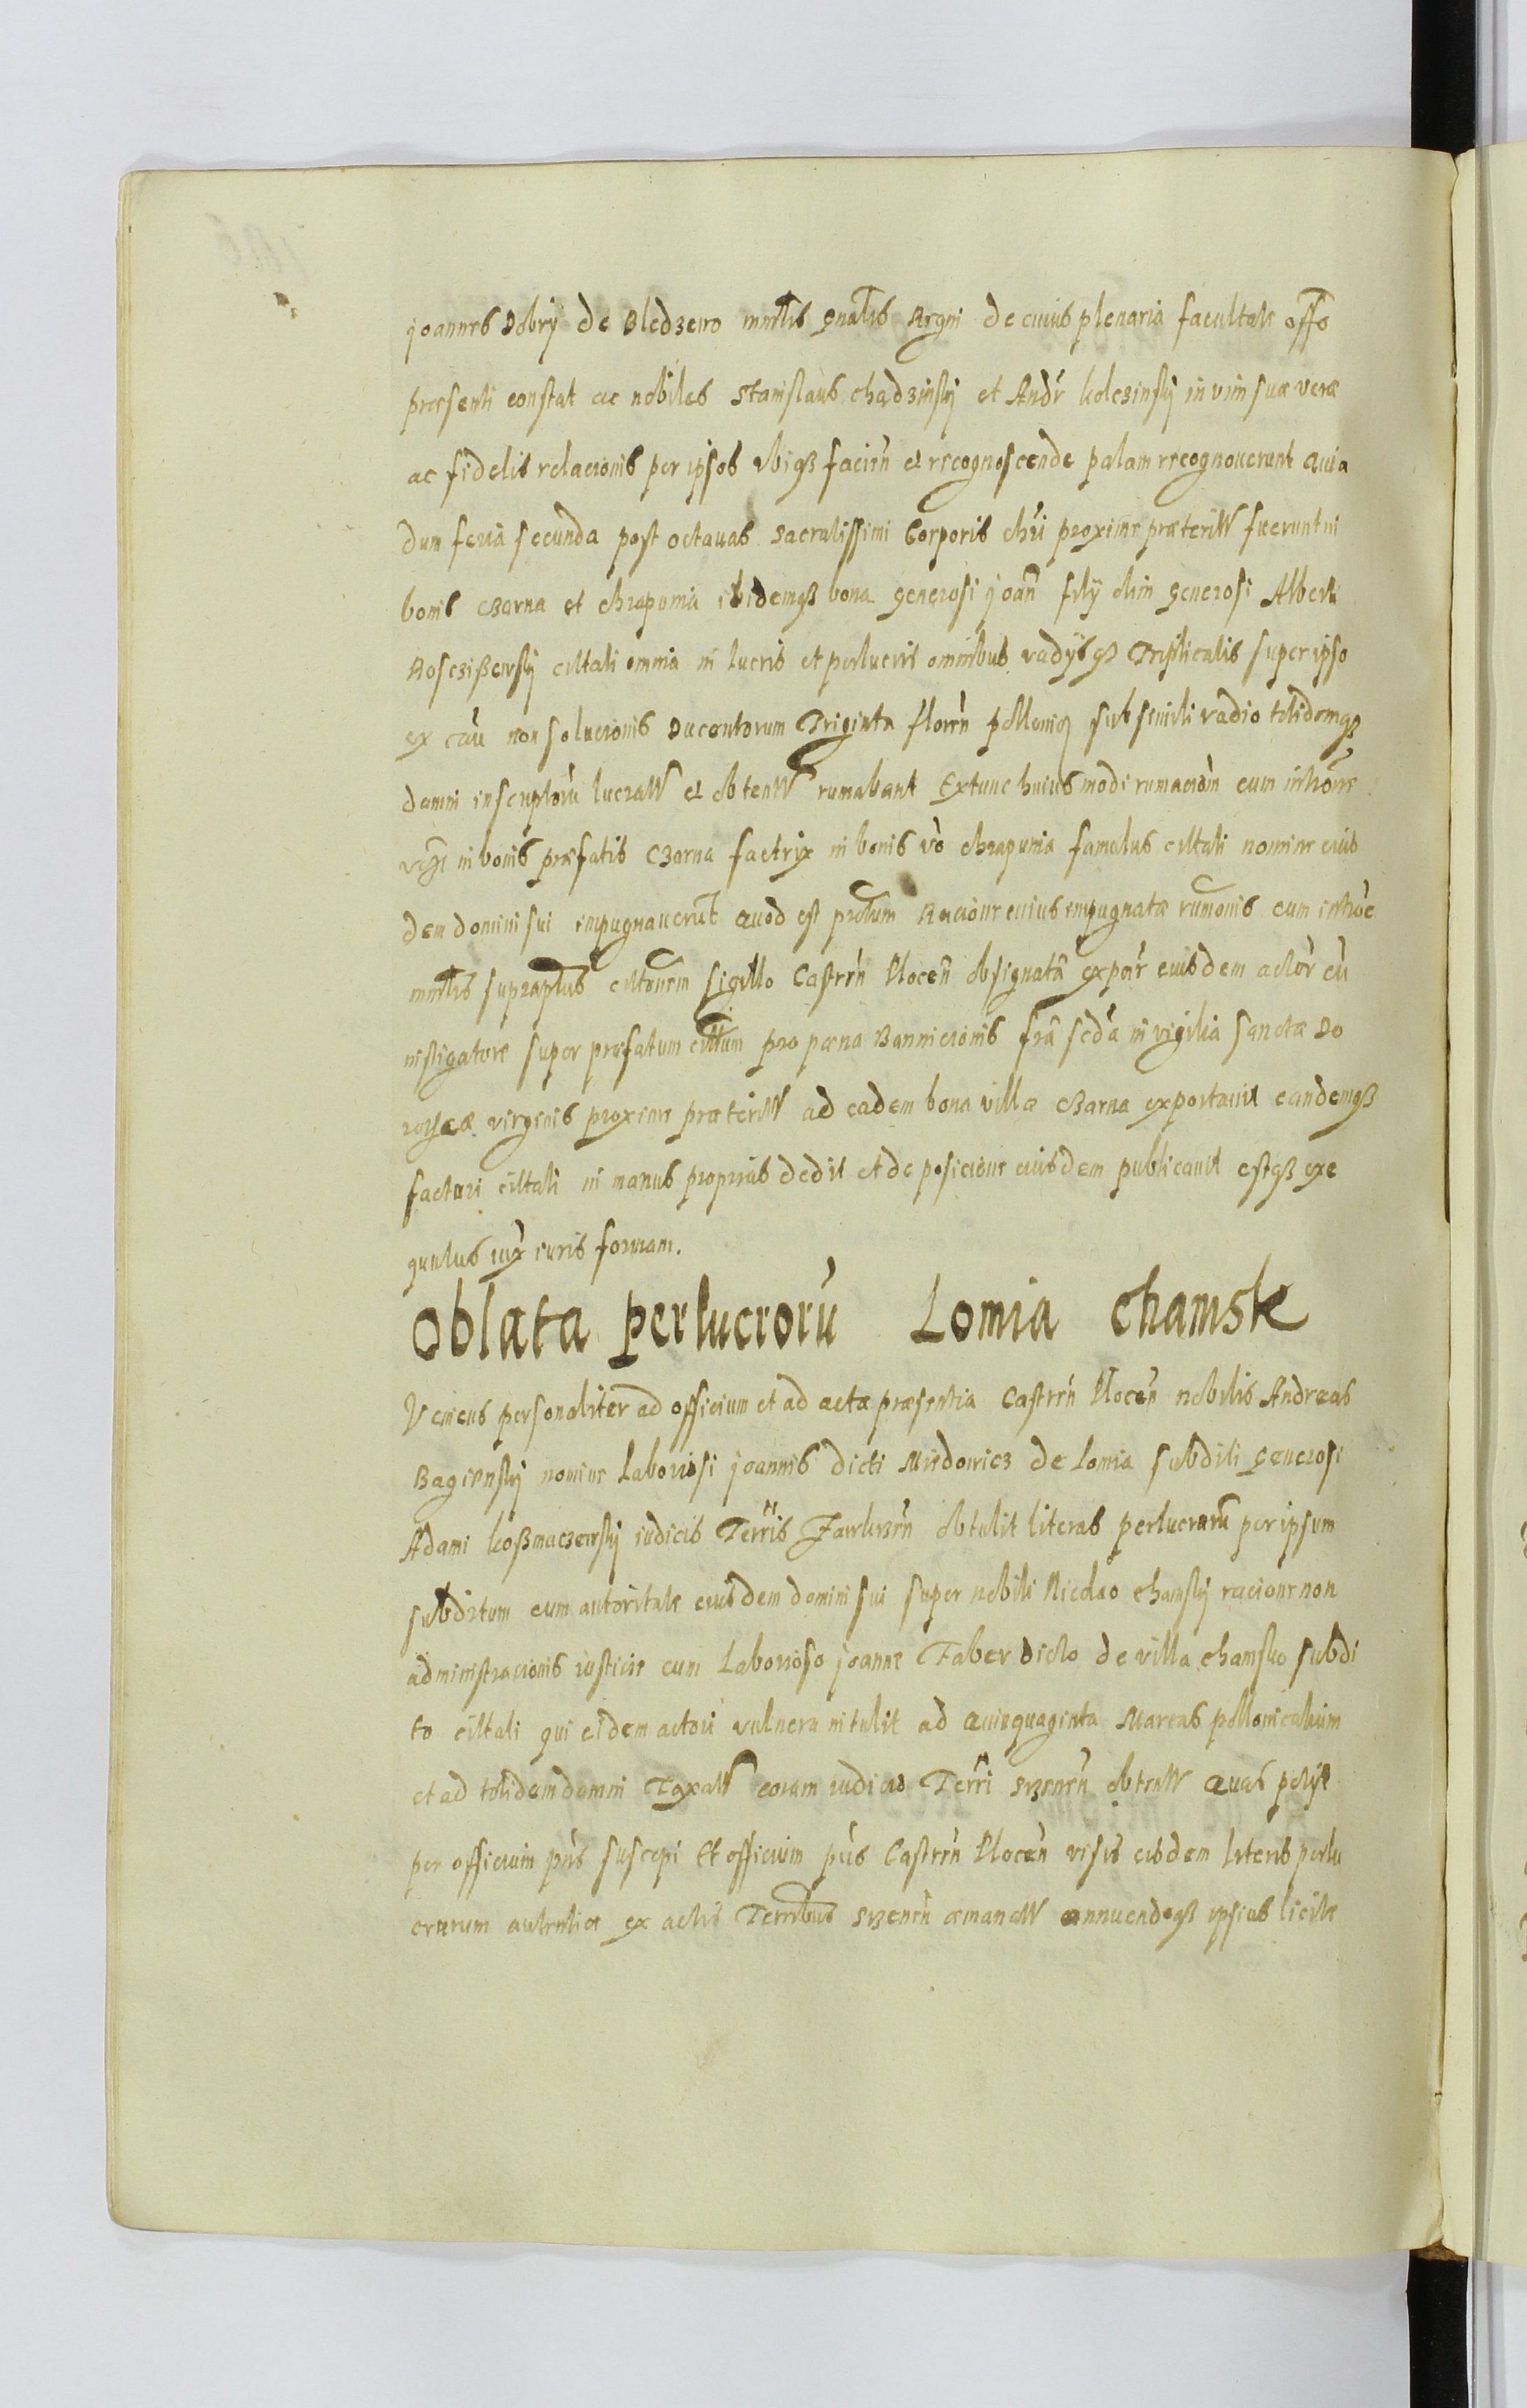 joannes Dobry de Bledzewo mnrlis gnalis Regni de cuius plenaria facultate offo
præsenti constat ac nobiles Stanislaus chądzinsky et Andr kolczinsky in vim suæ veræ
ac fidelis relacionis per ipsos vbiqß facien et recognoscende palam recognoverunt Quia
dum feria secunda post octauas sacratissimi Corporis chri proxime præterit fuerunt in
bonis czarna et chrapunia ibidemqß bona generosi joan filij olim generosi Alberti
Rosczißewsky citati omnia in lucris et perlucris omnibus vadysqß Triplicatis super ipso
ex cau non solucionis Ducentorum Triginta floren pollonicą sub simili vadio totidemqß
damni inscriptoru lucrat et obtent rumabant Extunc huius modi rumacion cum introne
in bonis præfatis czarna factrix in bonis vo chrapunia famulus citati nomine eius
dem domini sui impugnauerut Quod est prolum Racione cuius impugnatæ rumonis cum introe
mnrlis supraptus citonem sigillo Castren Plocen obsignata ex par eiusdem actor cu
instigatore super præfatum citum pro pæna Bannicionis fra scda in vigilia sanctæ Do
rotheæ virginis proxime præterit ad eadem bona villæ czarna exportauit eandemqß
factori citati in manus proprias dedit et de posicione eiusdem publicauit estqß exe
quutus iux iuris formam.
Oblata perlucroru Lomia chamsk
Veniens personaliter ad officium et ad acta præsentia Castren Plocen nobilis Andreas
Bagiensky nomine Laboriosi joannis dicti Miedowicz de Lomia subditi generosi
Adami koßmaczewsky iudicis Terris Zawkrzen obtulit literas perlucraru per ipsum
subditum cum autoritate eiusdem domini sui super nobili Nicolao chamsky racione non
administracionis iusticie cum Laborioso joanne Faber dicto de villa chamsko subdi
to citati qui eidem actori vulnera intulit ad Quinquaginta Marcas pollonicalium
et ad totidem damni Taxat coram iudicio Terri srzenen obtent Quas petyt
per officium pns suscepi Et officium pns Castren Plocen visis eisdem literis perlu
crarum autentice ex actis Terribus srzenen æmanat annuendoqß ipsius licite